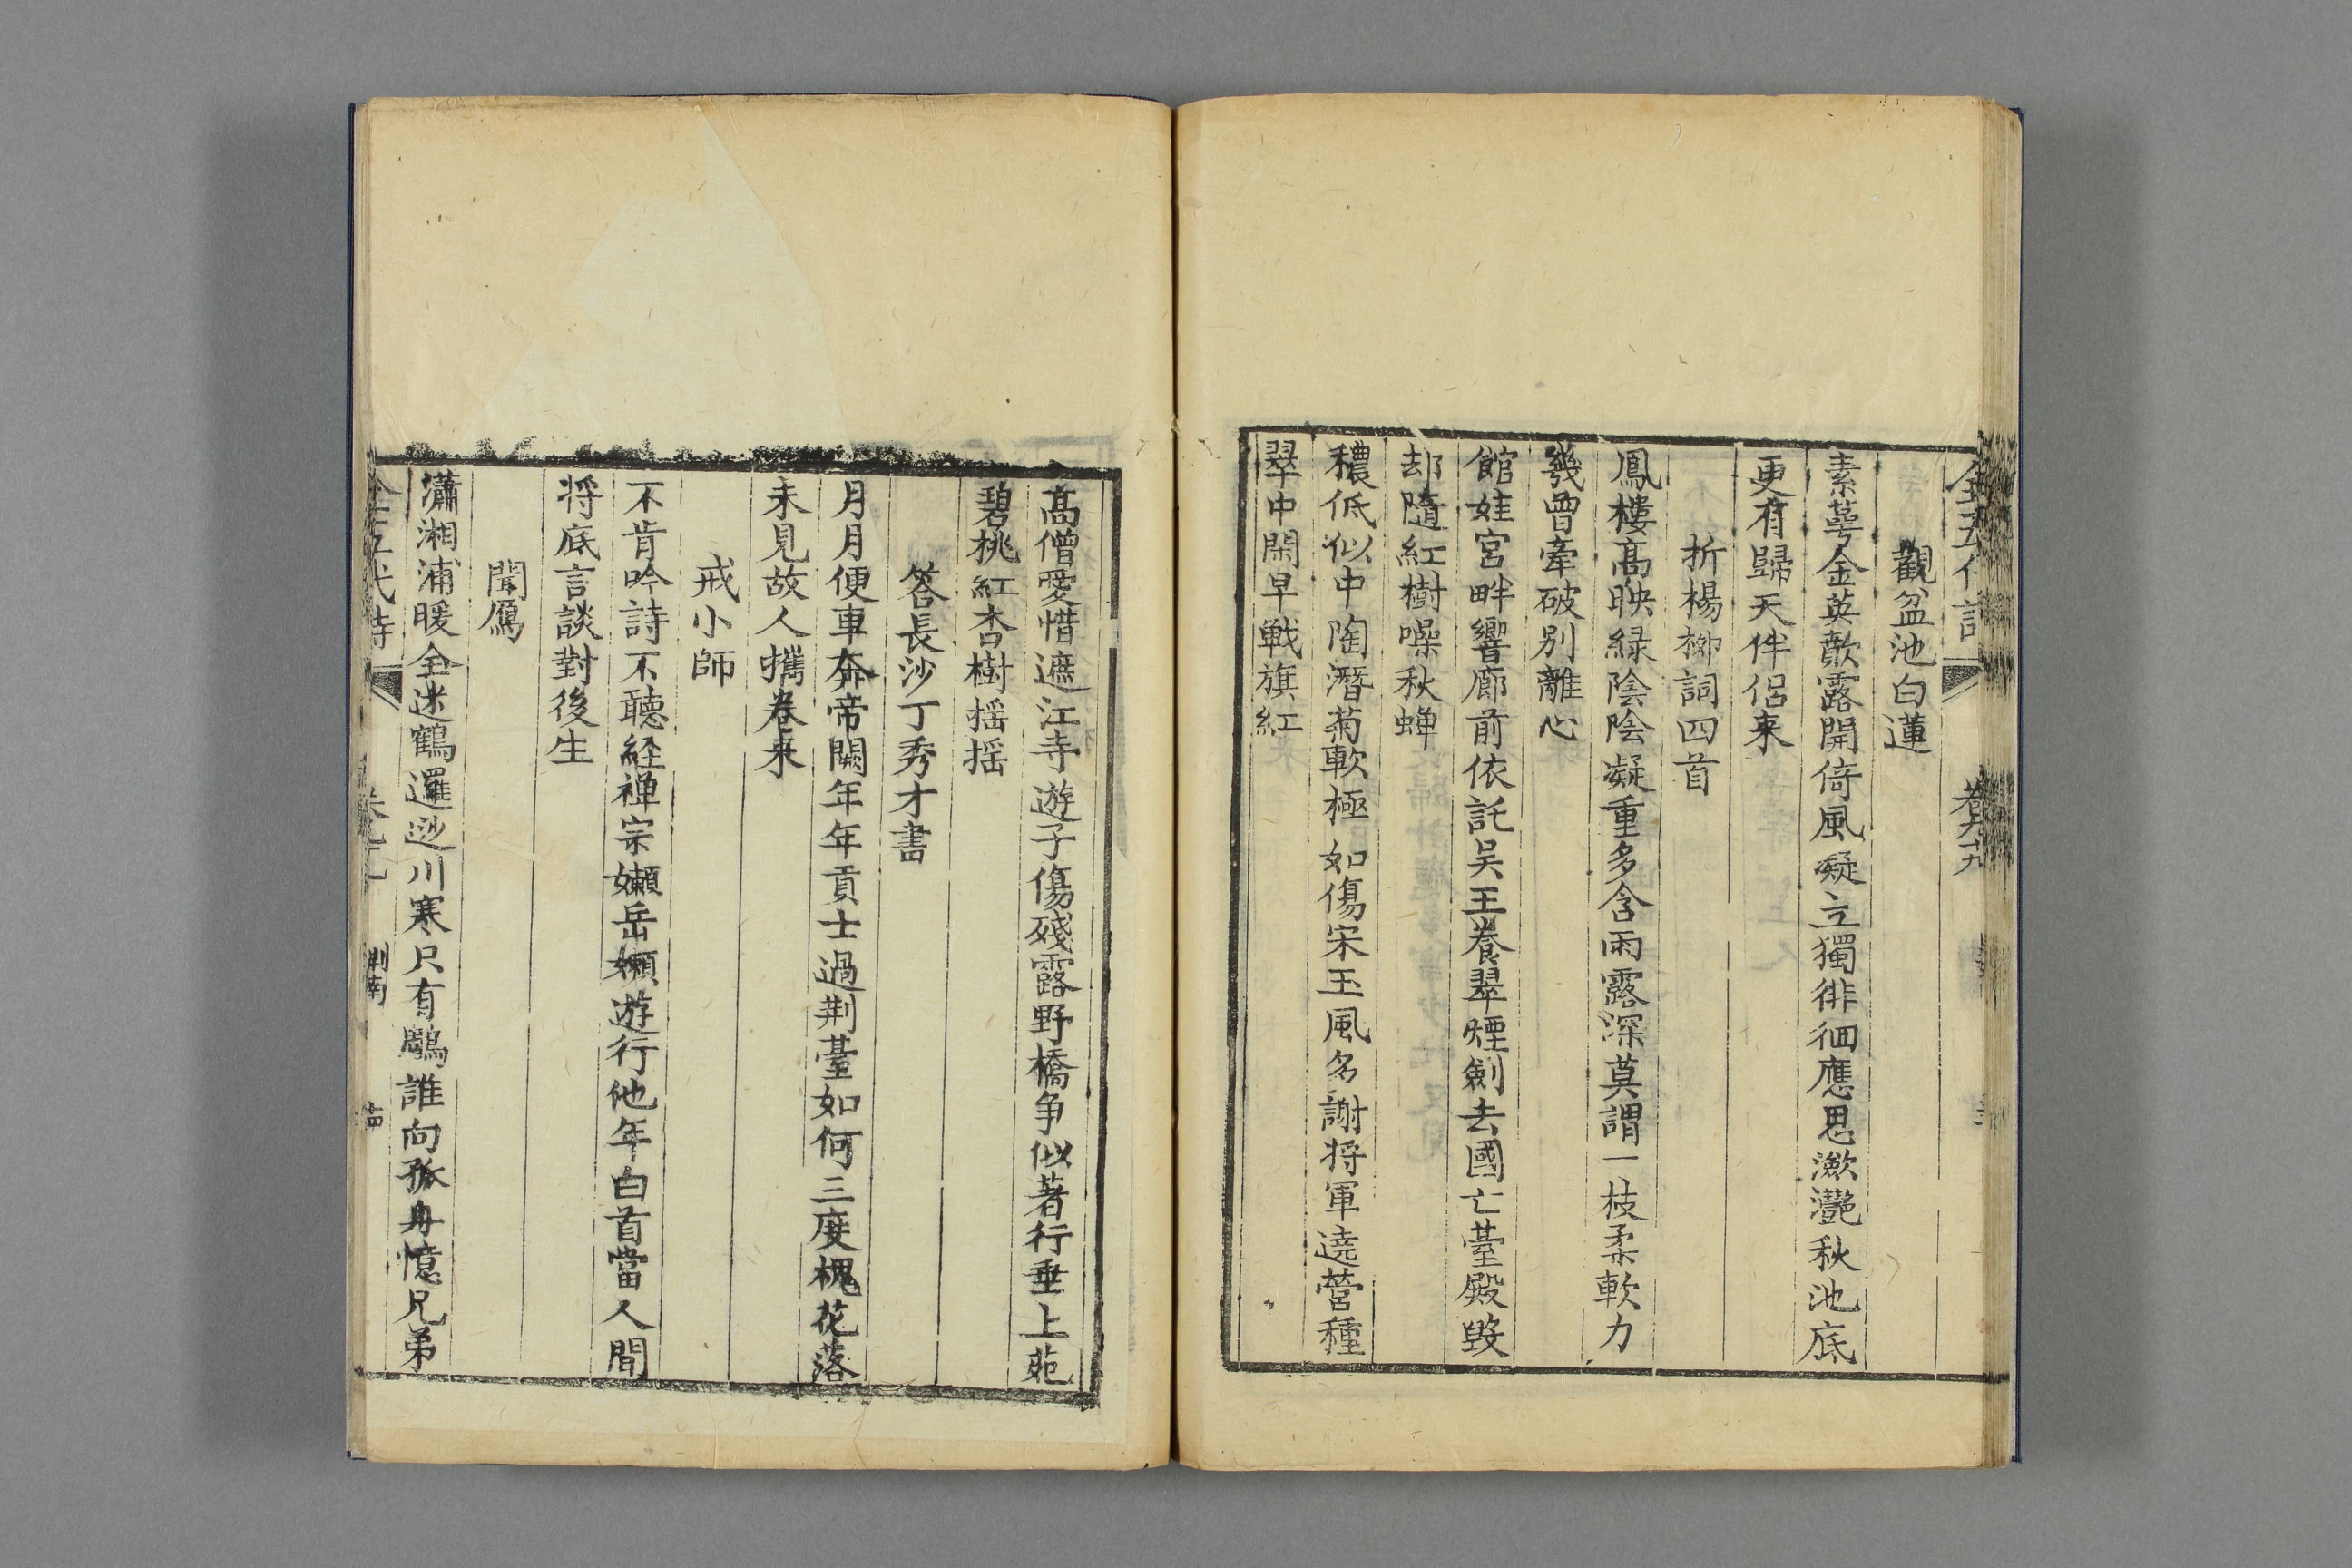 全五代詩
卷六十九
觀盆池白蓮
素萼金英歕露開倚風凝立獨徘徊應思潋灔秋池底
更有歸天伴侶来
折楊柳詞四首
鳳樓髙映緑陰陰凝重多含雨露深莫謂一枝柔軟力
㡬曽牽破别離心
館娃宮畔響廊前依託吴王養翠煙劍去國亡臺殿毀
却隨紅樹噪秋蟬
穠低似中陶潛菊軟極如傷宋玉風多謝将軍遶營種
翠中閑早戰旗紅
髙僧愛惜遮江寺遊子傷殘露野橋争似著行垂上苑
碧桃紅杏樹揺揺
答長沙丁秀才書
月月便車奔帝闕年年貢士過荆臺如何三度槐花落
未見故人攜卷来
戒小師
不肯吟詩不聽経禅宗嬾岳嬾遊行他年白首當人間
将底言談對後生
聞鴈
瀟湘浦暖全迷鶴邏逤川寒只有鵰誰向孤舟憶兄弟
全五代詩
荆南